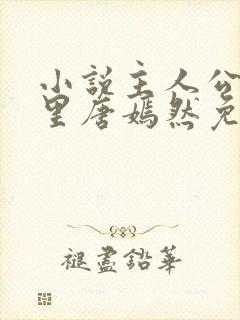 小说主人公
里唐嫣然免
褪盡鉛華